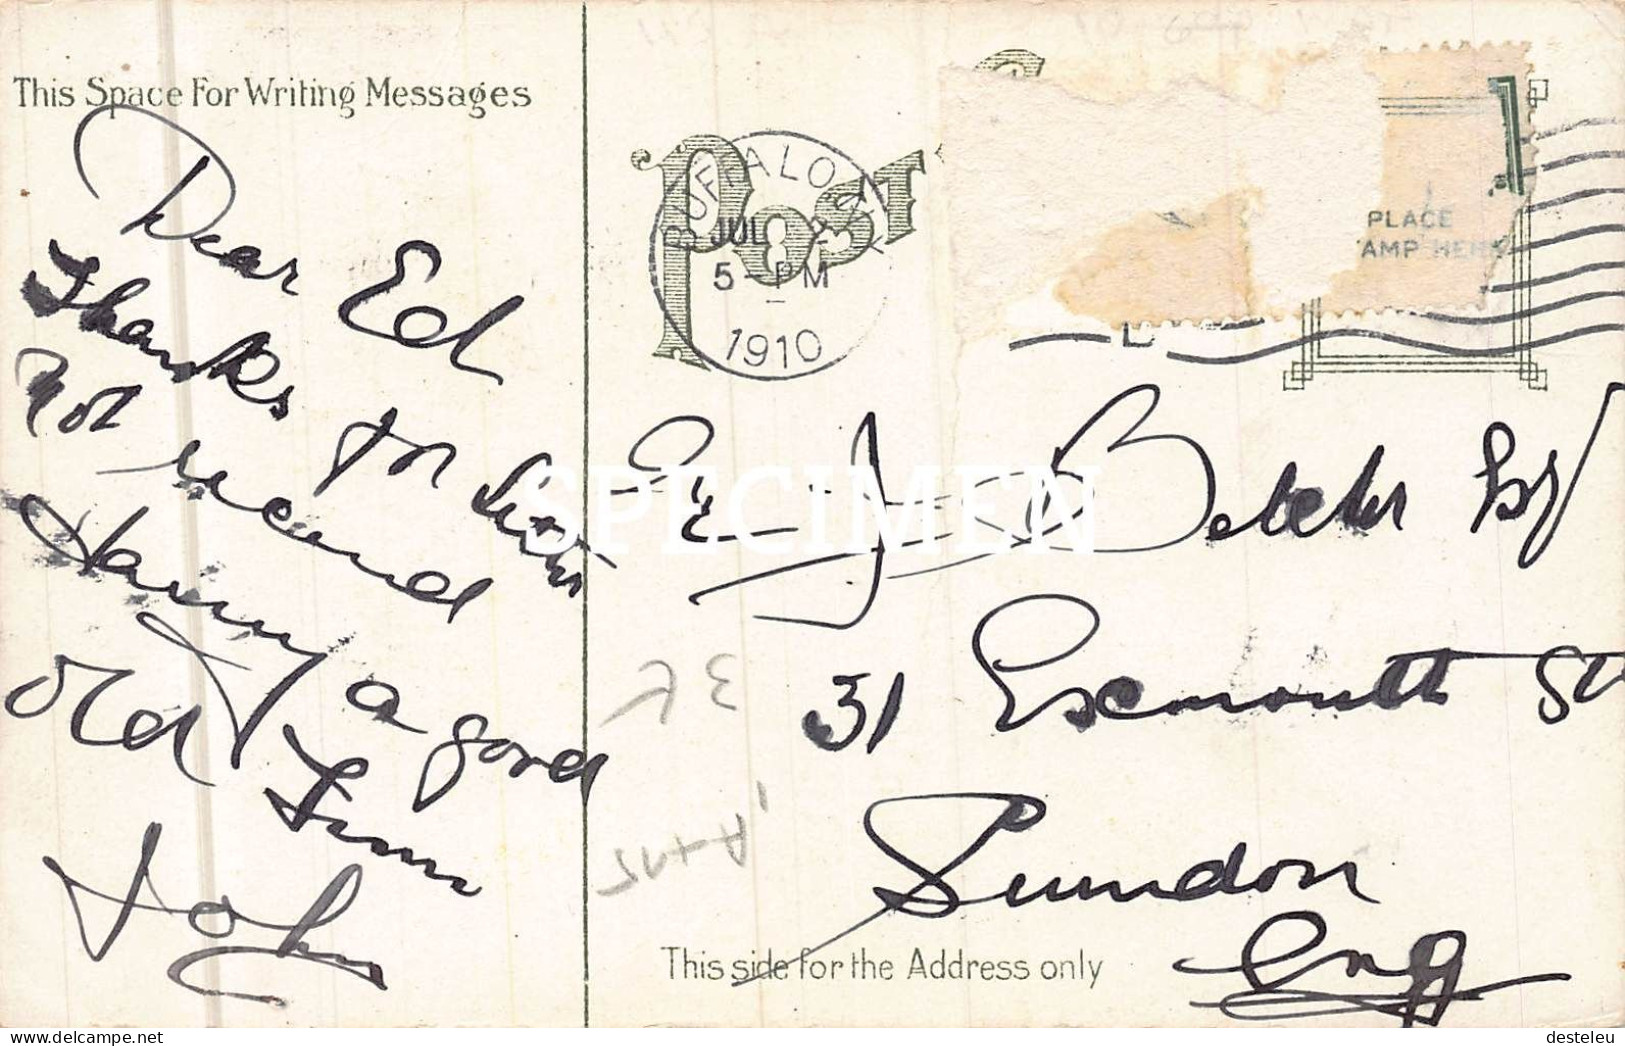 This Space For Writing Messages
Dear Ed
Thanks for letter
Not received
Having a good
Old Time
John
Post
BUFFALO N.Y.
JUL
5-PM
1910
PLACE
AMP HERE
E. J. Belcher Esq
31 Exmouth St
Swindon
Eng
This side for the Address only
SPECIMEN
desteleu